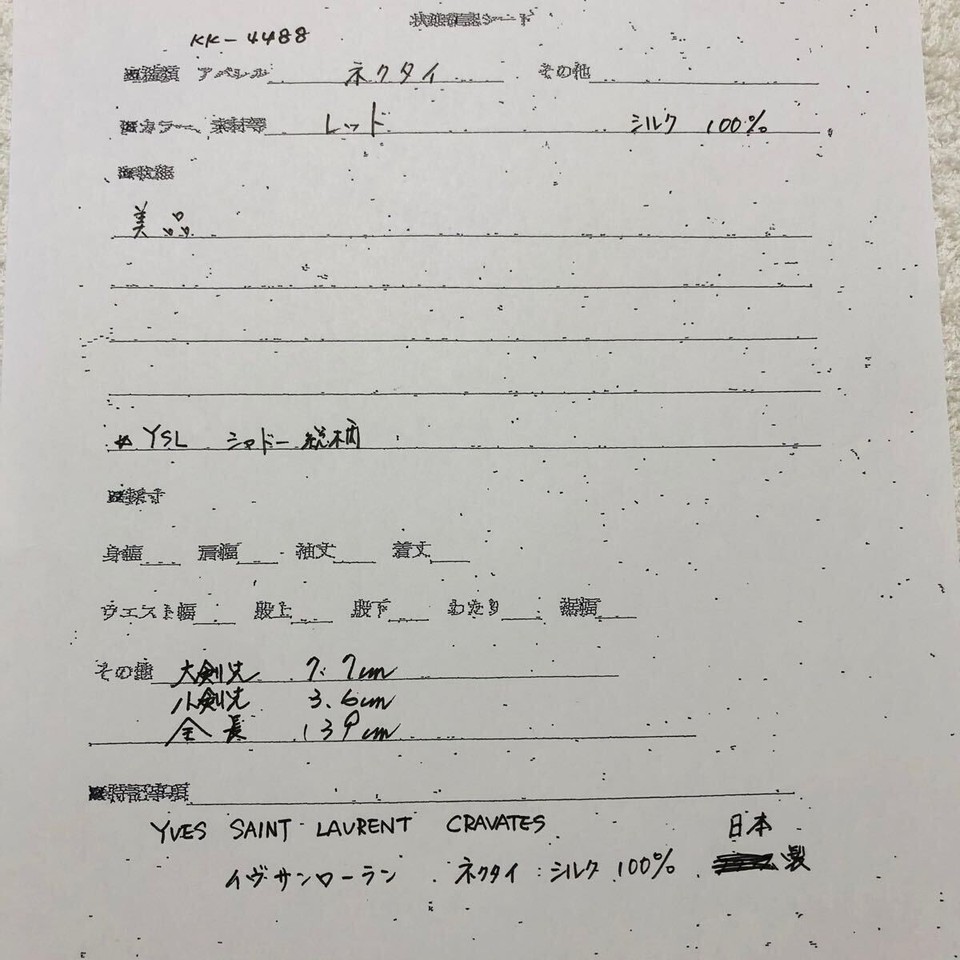 状態確認シート
KK-4488
■種類 アパレル ネクタイ その他
■カラー、素材等 レッド シルク 100%
■状態
美品
☆ YSL シャドー総柄
■採寸
身幅 肩幅 袖丈 着丈
ウエスト幅 股上 股下 わたり 裾幅
その他 大剣先 7.7cm
小剣先 3.6cm
全長 139cm
■特記事項
YVES SAINT LAURENT CRAVATES 日本
イヴサンローラン ネクタイ:シルク 100% 製